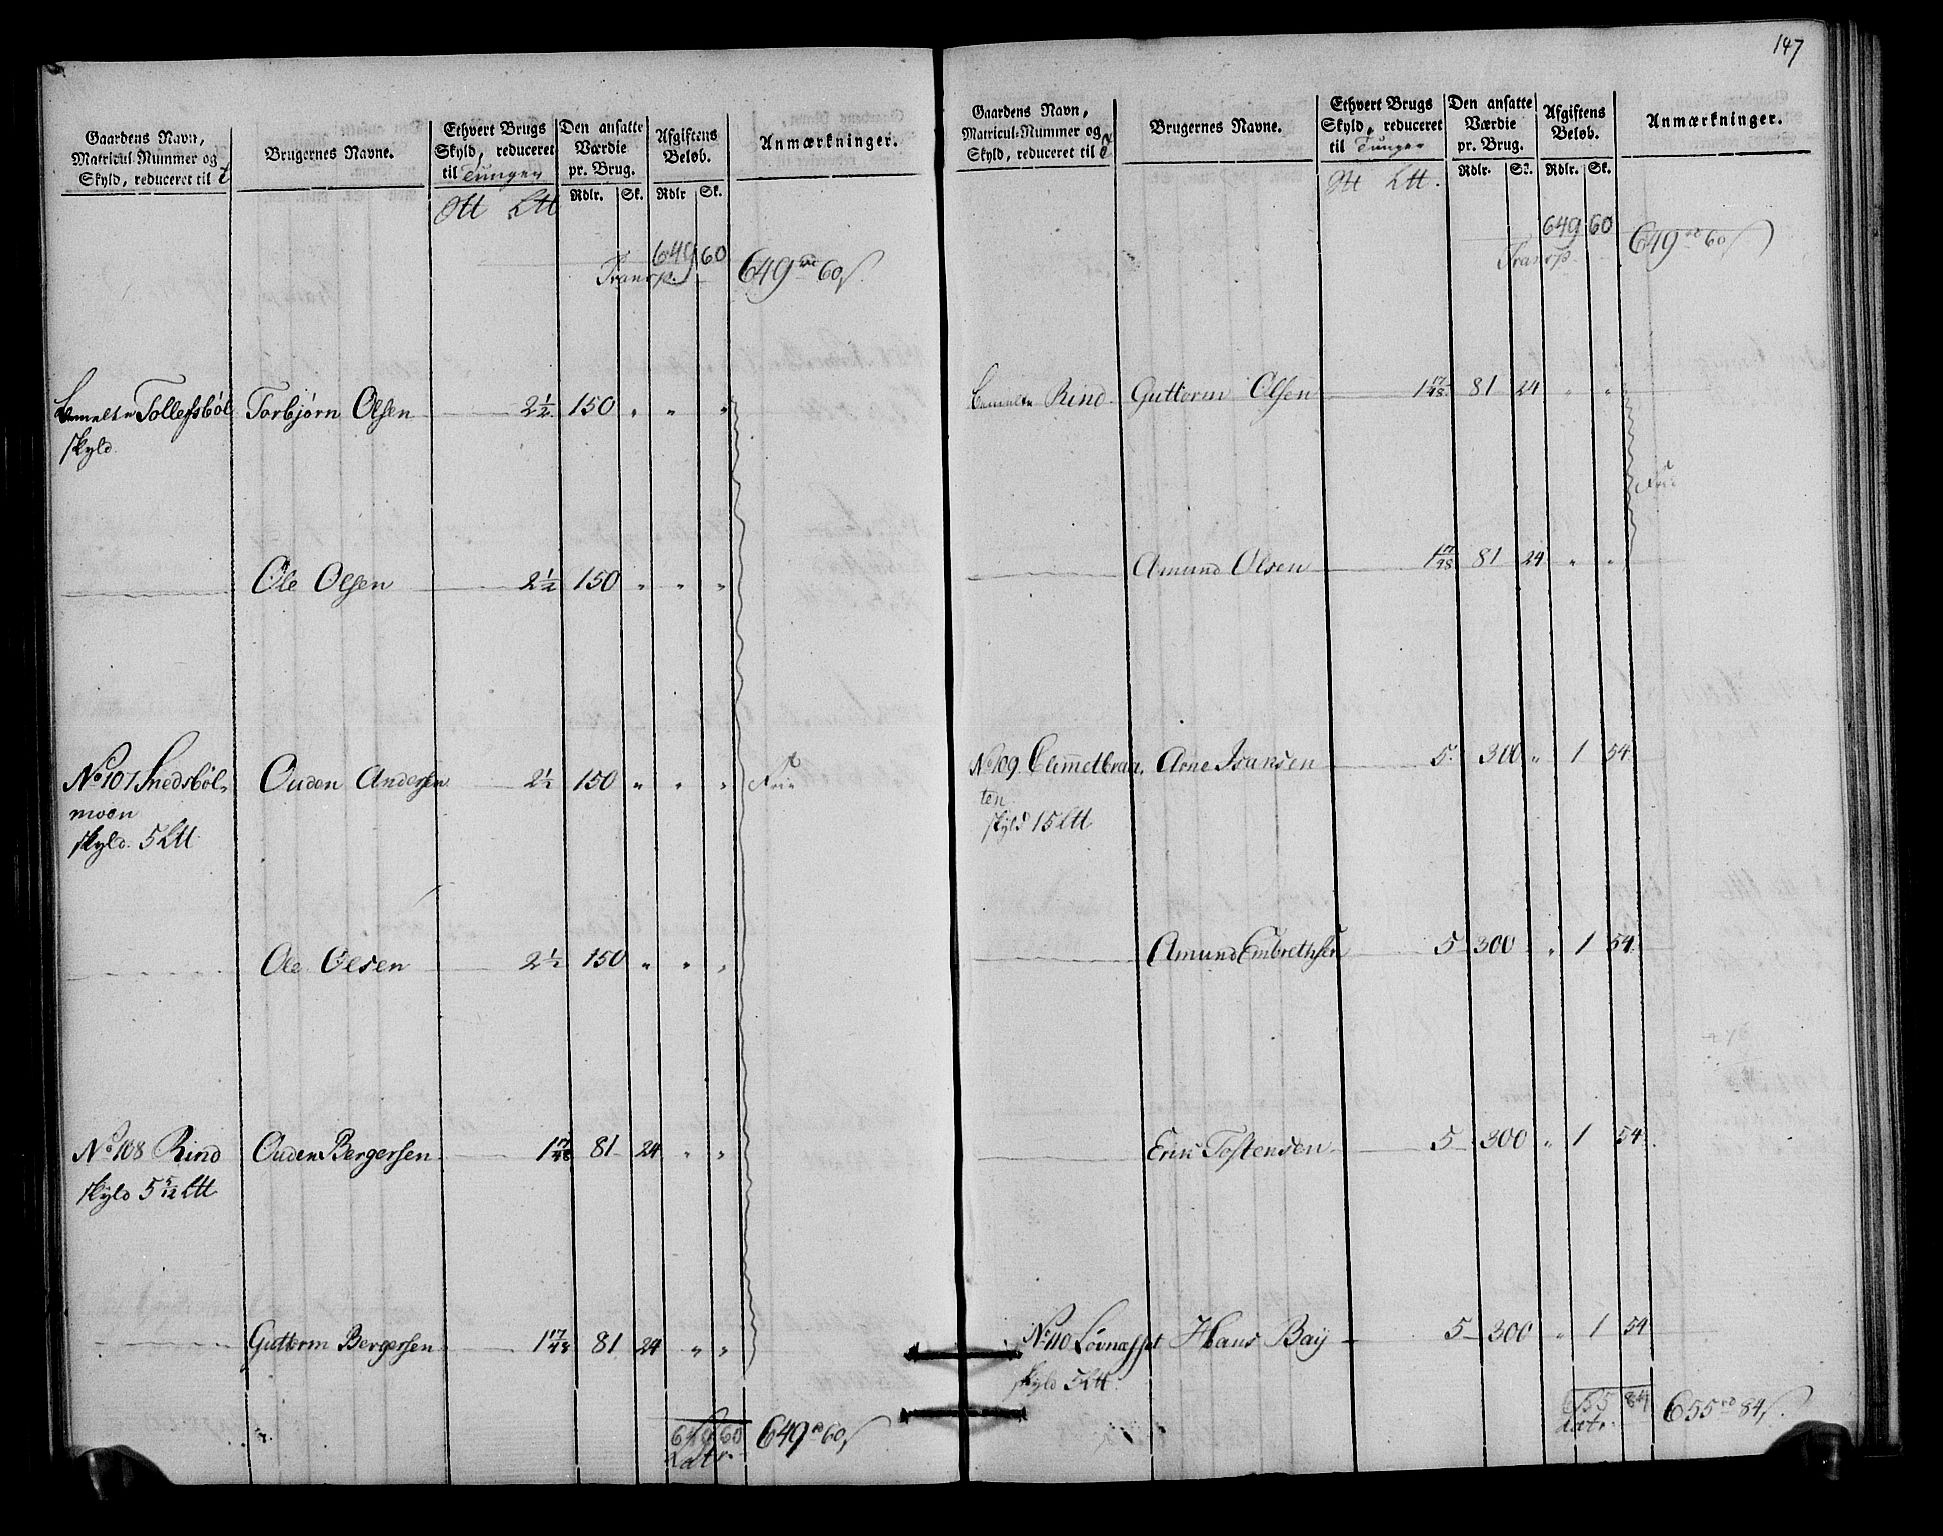 Gaardens Navn, Matricul-Nummer og Skyld, reduceret til
Brugernes Navne.
Ethvert Brugs Skyld, reduceret til Tunger
Den ansatte Værdie pr. Brug.
Afgiftens Beløb.
Anmærkninger.
Rdlr. Sk. Rdlr Sk.
649 60 649 rd 60 s
Transp.
Tollefsbøl Torbjørn Olsen 2 1/2 150 " " "
skyld
Ole Olsen 2 1/2 150 " " "
No 107 Snedsbøl- Ouden Andersen 2 1/2 150 " " " Frie
moen
skyld 5 Ltt
Ole Olsen 2 1/2 150 " " "
No 108 Rind Ouden Bergersen 1 17/48 81 24 " "
skyld 5 5/12 Ltt
Guttorm Bergersen 1 17/48 81 24 " "
649 60 649 rd 60 s
Latr.
147
Gaardens Navn, Matricul-Nummer og Skyld, reduceret til
Brugernes Navne.
Ethvert Brugs Skyld, reduceret til Tunger
Den ansatte Værdie pr. Brug.
Afgiftens Beløb.
Anmærkninger.
Rdlr. Sk. Rdlr. Sk.
649 60 649 rd 60 s
Transp.
Rind Guttorm Olsen 1 17/48 81 24 " "
Frie
Amund Olsen 1 17/48 81 24 " "
No 109 Arne Ivansen 5 300 " 1 54
ten
skyld 15 Ltt
Amund Embrethsen 5 300 " 1 54
Eric Tostensen 5 300 " 1 54
No 110 Løvnæsset Hans Baÿ 5 300 " 1 54
skyld 5 Ltt
655 84 655 rd 84 s
Latr.